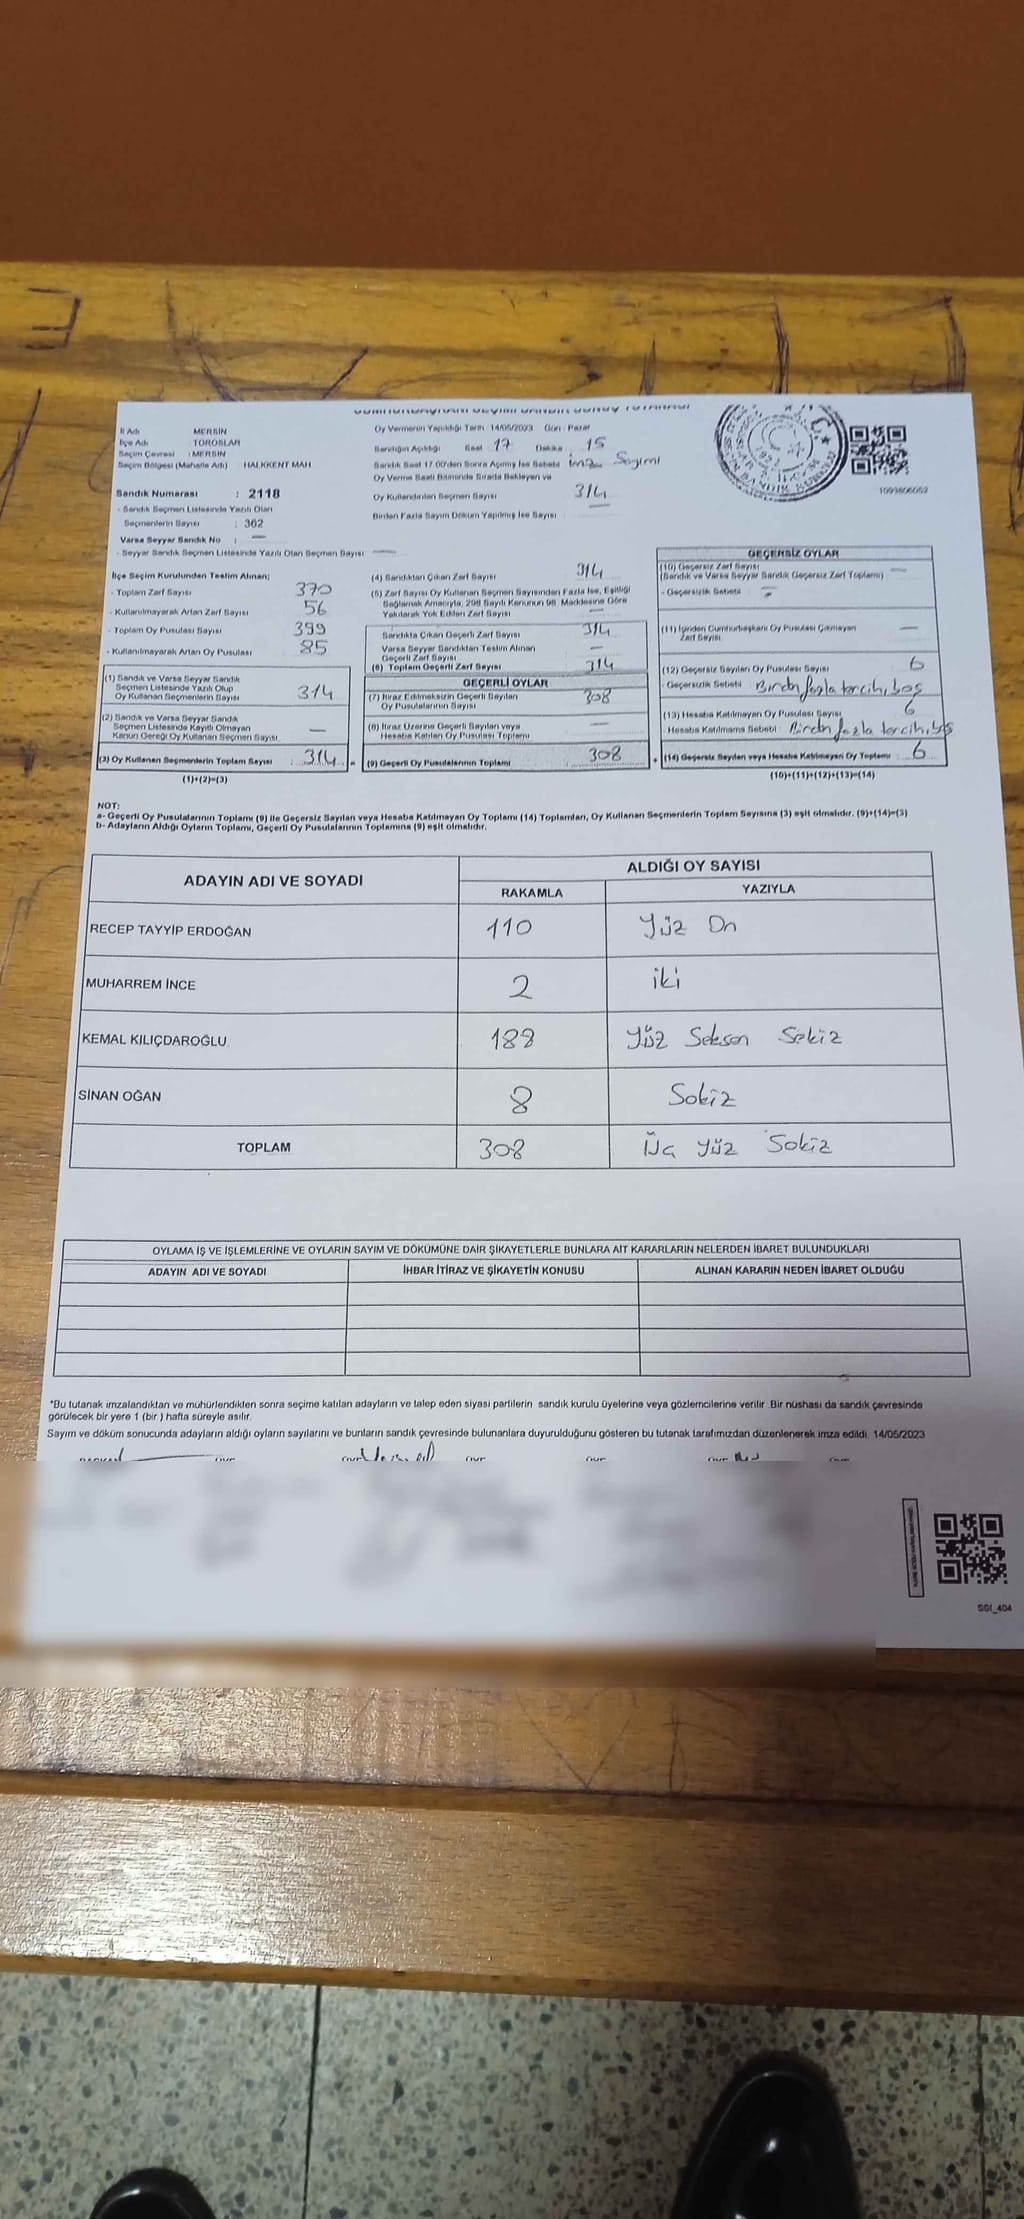 CUMHURBAŞKANI SEÇİMİ SANDIK SONUÇ TUTANAĞI
İl Adı MERSİN
İlçe Adı TOROSLAR
Seçim Çevresi : MERSİN
Seçim Bölgesi (Mahalle Adı) HALKKENT MAH
Sandık Numarası : 2118
- Sandık Seçmen Listesinde Yazılı Olan
Seçmenlerin Sayısı : 362
Varsa Seyyar Sandık No : —
- Seyyar Sandık Seçmen Listesinde Yazılı Olan Seçmen Sayısı —
Oy Vermenin Yapıldığı Tarih : 14/05/2023 Gün : Pazar
Sandığın Açıldığı Saat 17 Dakika 15
Sandık Saat 17.00'den Sonra Açılmış İse Sebebi imza Sayımı
Oy Verme Saati Bitiminde Sırada Bekleyen ve
Oy Kullandırılan Seçmen Sayısı 314
Birden Fazla Sayım Döküm Yapılmış İse Sayısı —
1093806052
İlçe Seçim Kurulundan Teslim Alınan;
- Toplam Zarf Sayısı 370
- Kullanılmayarak Artan Zarf Sayısı 56
- Toplam Oy Pusulası Sayısı 399
- Kullanılmayarak Artan Oy Pusulası 85
(1) Sandık ve Varsa Seyyar Sandık
Seçmen Listesinde Yazılı Olup
Oy Kullanan Seçmenlerin Sayısı 314
(2) Sandık ve Varsa Seyyar Sandık
Seçmen Listesinde Kayıtlı Olmayan
Kanun Gereği Oy Kullanan Seçmen Sayısı —
(3) Oy Kullanan Seçmenlerin Toplam Sayısı : 314
(1)+(2)=(3)
(4) Sandıktan Çıkan Zarf Sayısı 314
(5) Zarf Sayısı Oy Kullanan Seçmen Sayısından Fazla İse, Eşitliği
Sağlamak Amacıyla, 298 Sayılı Kanunun 98. Maddesine Göre
Yakılarak Yok Edilen Zarf Sayısı —
Sandıkta Çıkan Geçerli Zarf Sayısı 314
Varsa Seyyar Sandıktan Teslim Alınan
Geçerli Zarf Sayısı —
(6) Toplam Geçerli Zarf Sayısı 314
GEÇERLİ OYLAR
(7) İtiraz Edilmeksizin Geçerli Sayılan
Oy Pusulalarının Sayısı 308
(8) İtiraz Üzerine Geçerli Sayılan veya
Hesaba Katılan Oy Pusulası Toplamı —
(9) Geçerli Oy Pusulalarının Toplamı 308
GEÇERSİZ OYLAR
(10) Geçersiz Zarf Sayısı
(Sandık ve Varsa Seyyar Sandık Geçersiz Zarf Toplamı) —
- Geçersizlik Sebebi :
(11) İçinden Cumhurbaşkanı Oy Pusulası Çıkmayan
Zarf Sayısı —
(12) Geçersiz Sayılan Oy Pusulası Sayısı 6
- Geçersizlik Sebebi Birden fazla tercih, boş
(13) Hesaba Katılmayan Oy Pusulası Sayısı 6
Hesaba Katılmama Sebebi : Birden fazla tercih, boş
(14) Geçersiz Sayılan veya Hesaba Katılmayan Oy Toplamı : 6
(10)+(11)+(12)+(13)=(14)
NOT:
a- Geçerli Oy Pusulalarının Toplamı (9) ile Geçersiz Sayılan veya Hesaba Katılmayan Oy Toplamı (14) Toplamları, Oy Kullanan Seçmenlerin Toplam Sayısına (3) eşit olmalıdır. (9)+(14)=(3)
b- Adayların Aldığı Oyların Toplamı, Geçerli Oy Pusulalarının Toplamına (9) eşit olmalıdır.
ADAYIN ADI VE SOYADI
ALDIĞI OY SAYISI
RAKAMLA YAZIYLA
RECEP TAYYİP ERDOĞAN 110 Yüz On
MUHARREM İNCE 2 iki
KEMAL KILIÇDAROĞLU 188 Yüz Seksen Sekiz
SİNAN OĞAN 8 Sekiz
TOPLAM 308 Üç Yüz Sekiz
OYLAMA İŞ VE İŞLEMLERİNE VE OYLARIN SAYIM VE DÖKÜMÜNE DAİR ŞİKAYETLERLE BUNLARA AİT KARARLARIN NELERDEN İBARET BULUNDUKLARI
ADAYIN ADI VE SOYADI İHBAR İTİRAZ VE ŞİKAYETİN KONUSU ALINAN KARARIN NEDEN İBARET OLDUĞU
*Bu tutanak imzalandıktan ve mühürlendikten sonra seçime katılan adayların ve talep eden siyasi partilerin sandık kurulu üyelerine veya gözlemcilerine verilir. Bir nüshası da sandık çevresinde
görülecek bir yere 1 (bir ) hafta süreyle asılır.
Sayım ve döküm sonucunda adayların aldığı oyların sayılarını ve bunların sandık çevresinde bulunanlara duyurulduğunu gösteren bu tutanak tarafımızdan düzenlenerek imza edildi. 14/05/2023
SSI_404